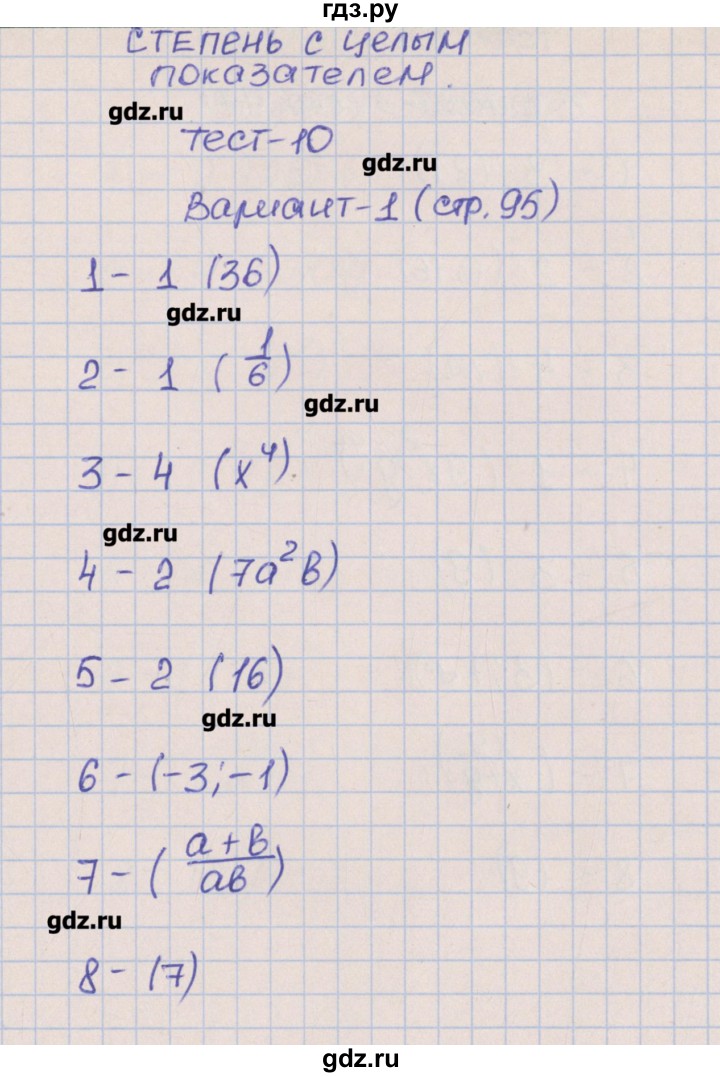 гдз.ру
СТЕПЕНЬ С ЦЕЛЫМ
ПОКАЗАТЕЛЕМ.
gdz.ru
тест-10
gdz.ru
Вариант-1 (стр. 95)
1 - 1 (36)
gdz.ru
2 - 1 (1/6)
gdz.ru
3 - 4 (x⁴).
gdz.ru
4 - 2 (7a²b)
5 - 2 (16)
gdz.ru
6 - (-3; -1)
7 - (a+b/ab)
gdz.ru
8 - (7)
gdz.ru